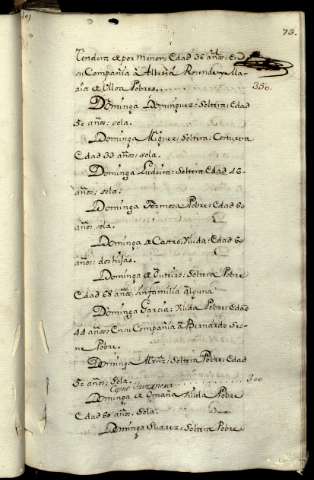 73.
Tendera de por Menor: Edad 36 años: En
su Compañia à Rosende y Ma-
ria de Ulloa Pobres. . . 350.
Dominga Dominguez: Soltera: Edad
50 años: sola.
Dominga Miguez: Soltera: Costurera
Edad 33 años: sola.
Dominga Ludeiro: Soltera: Edad 46
años: sola:
Dominga Pobre: Edad 60
años, sola.
Dominga de Castro, Viuda: Edad 60
años: dos hijas.
Dominga de Outeiro: Soltera Pobre
Edad 68 años, sin familia alguna
Dominga Garcia: Viuda Pobre: Edad
44 años: En su Compañia à Bernardo
Pobre.
Dominga Soltera Pobre: Edad
50 años: Sola. 300
Dominga de Viuda Pobre
Edad 60 años: Sola.
Dominga Suarez: Soltera Pobre